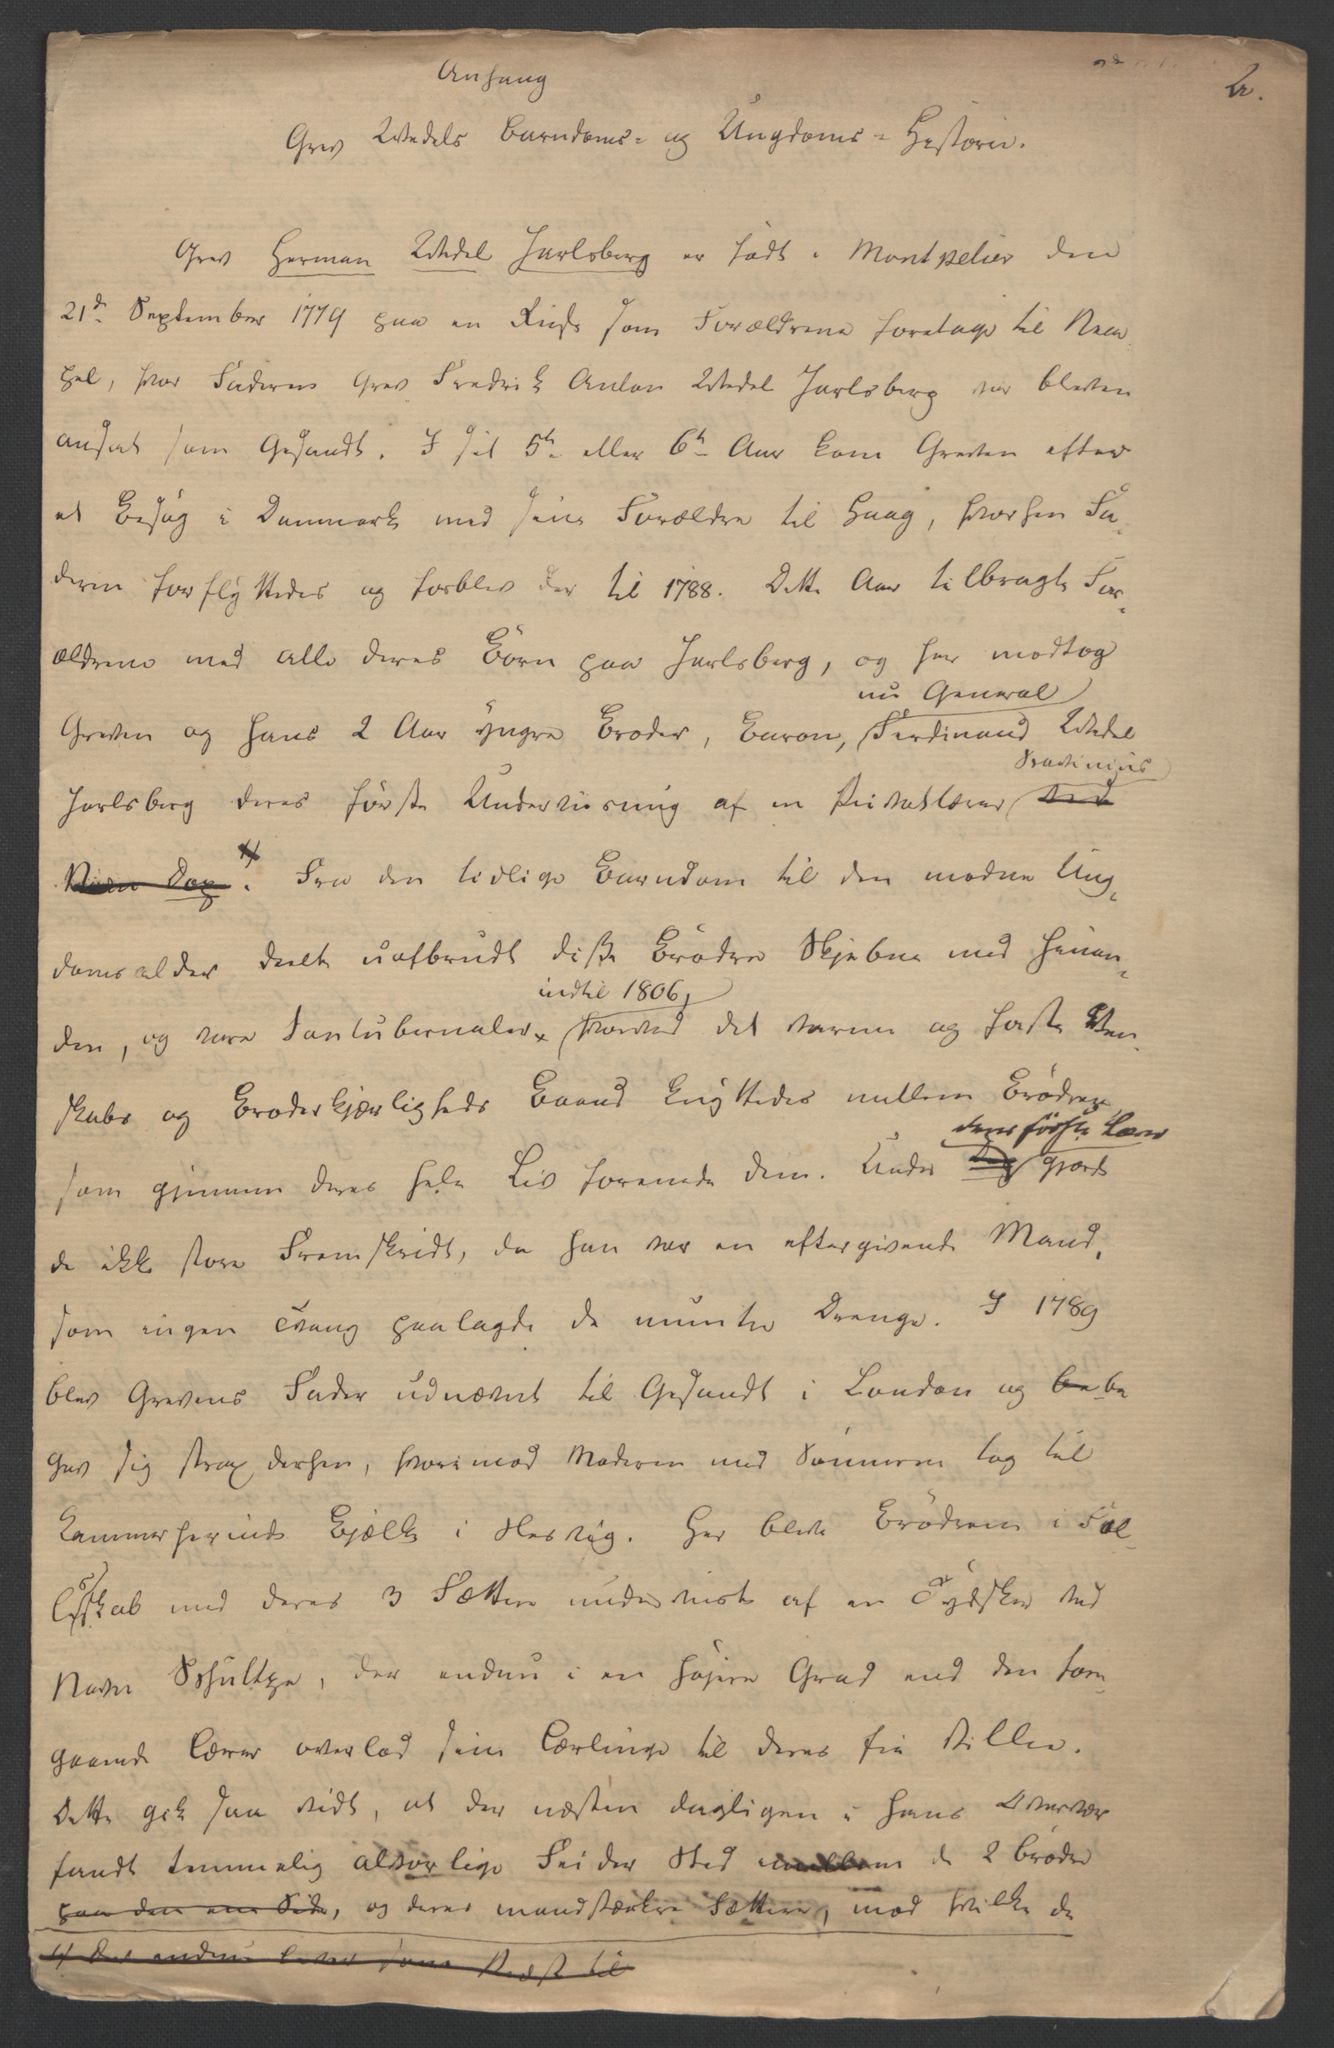 Anhang
2.
Grev Wedels Barndoms- og Ungdoms-Historie.
Grev Herman Wedel Jarlsberg er født i Montpelier den
21de September 1779 paa en Reise som Forældrene foretoge til Nea-
pel, hvor Faderen Grev Fredrik Anton Wedel Jarlsberg var bleven
ansat som Gesandt. I sit 5te eller 6te Aar kom Greven efter
et Besøg i Danmark med sine Forældre til Haag, hvorhen Fa-
deren forflyttedes og forblev der til 1788. Dette Aar tilbragte For-
ældrene med alle deres Börn paa Jarlsberg, og her modtog
nu General
Greven og hans 2 Aar yngre Broder, Baron, Ferdinand Wedel
Jarlsberg deres första Underviisning af en Privatlærer ved
Navn Dop. Fra den tidlige Barndom til den modne Ung-
domsalder deelte uafbrudt disse Brödre Skjebne med hinan-
indtil 1806,
den, og vare Contubernaler hvorved det varme og faste Ven-
skabs og Broderkjærligheds Baand knyttedes mellem Brödrene
deres förste Lærer
som gjennem deres hele Liv forenede dem. Under gjorde
de ikke store Fremskridt, da han var en eftergivende Mand,
som ingen Tvang paalagde de muntre Drenge. I 1789
blev Grevens Fader udnævnt til Gesandt i London og be be
gav sig strax derhen, hvorimod Moderen med Sönnerne tog til
Kammerherinde Qvalen i Slesvig. Her bleve Brödrene i Sel-
lskab med deres 3 Fættere underviste af en Tydsker ved
Navn Schultze, der endnu i en höjere Grad end den fore-
gaaende Lærer overlod sine Lærlinge til deres frie Villie.
Dette gik saa vidt, at der næsten dagligen i hans Overvær
fandt temmelig alvorlige Feider Sted mellem de 2 Brödre
paa den ene Side, og deres mandstærkere Fættere, mod hvilke de
1) Der endnu lever som Præst til